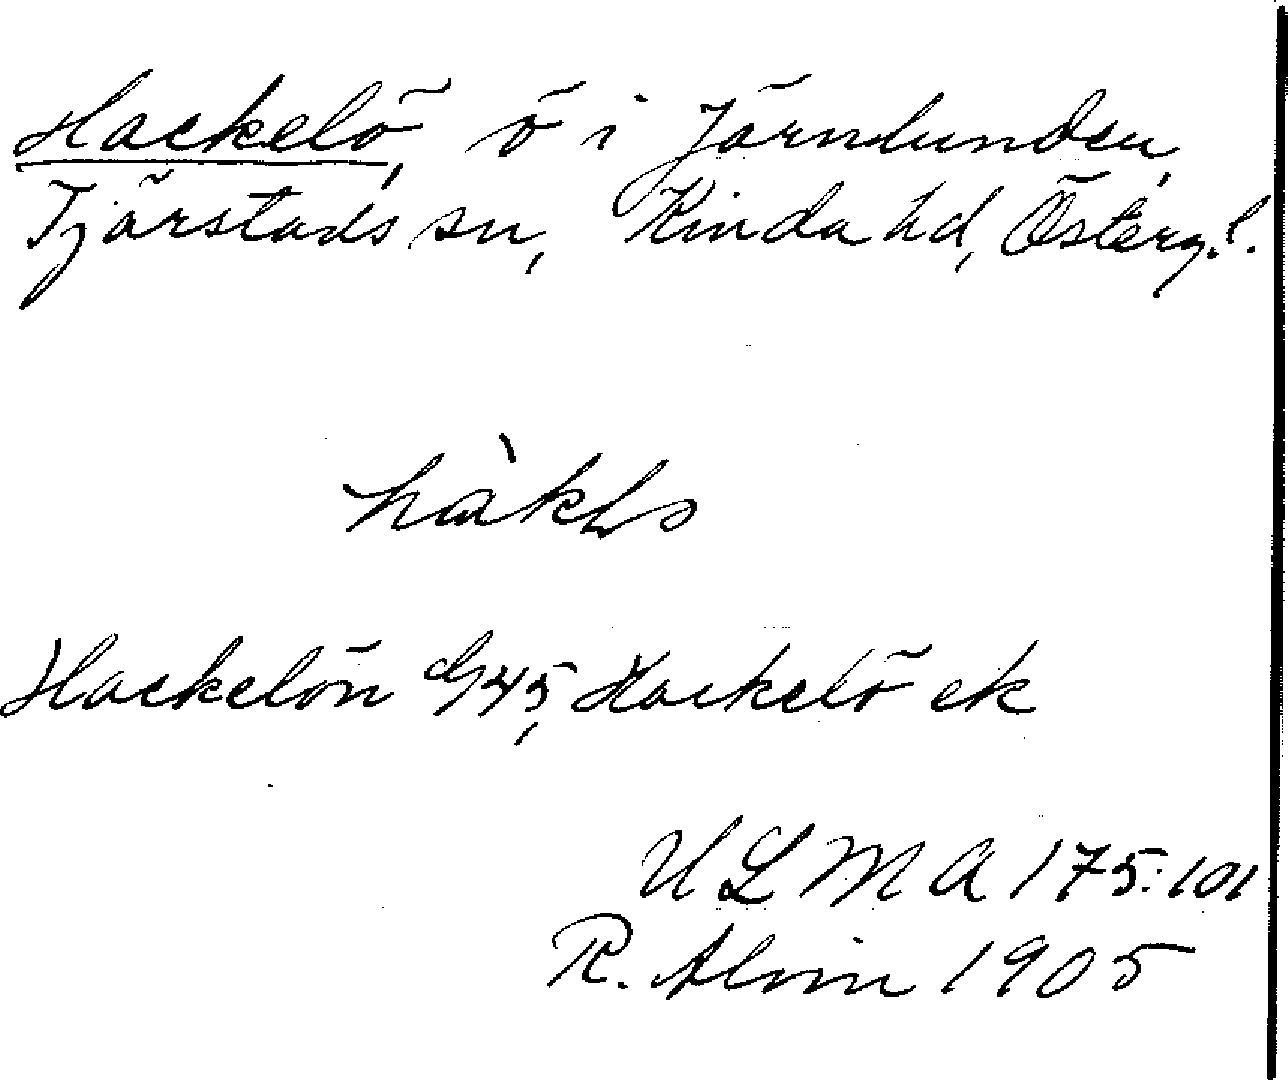 Hackelö, ö i Järnlunden,
Tjärstads sn, Kinda hd, Österg. l.
Hackelön G45, Hackelö ek
ULMA 175:101
R. Alvin 1905